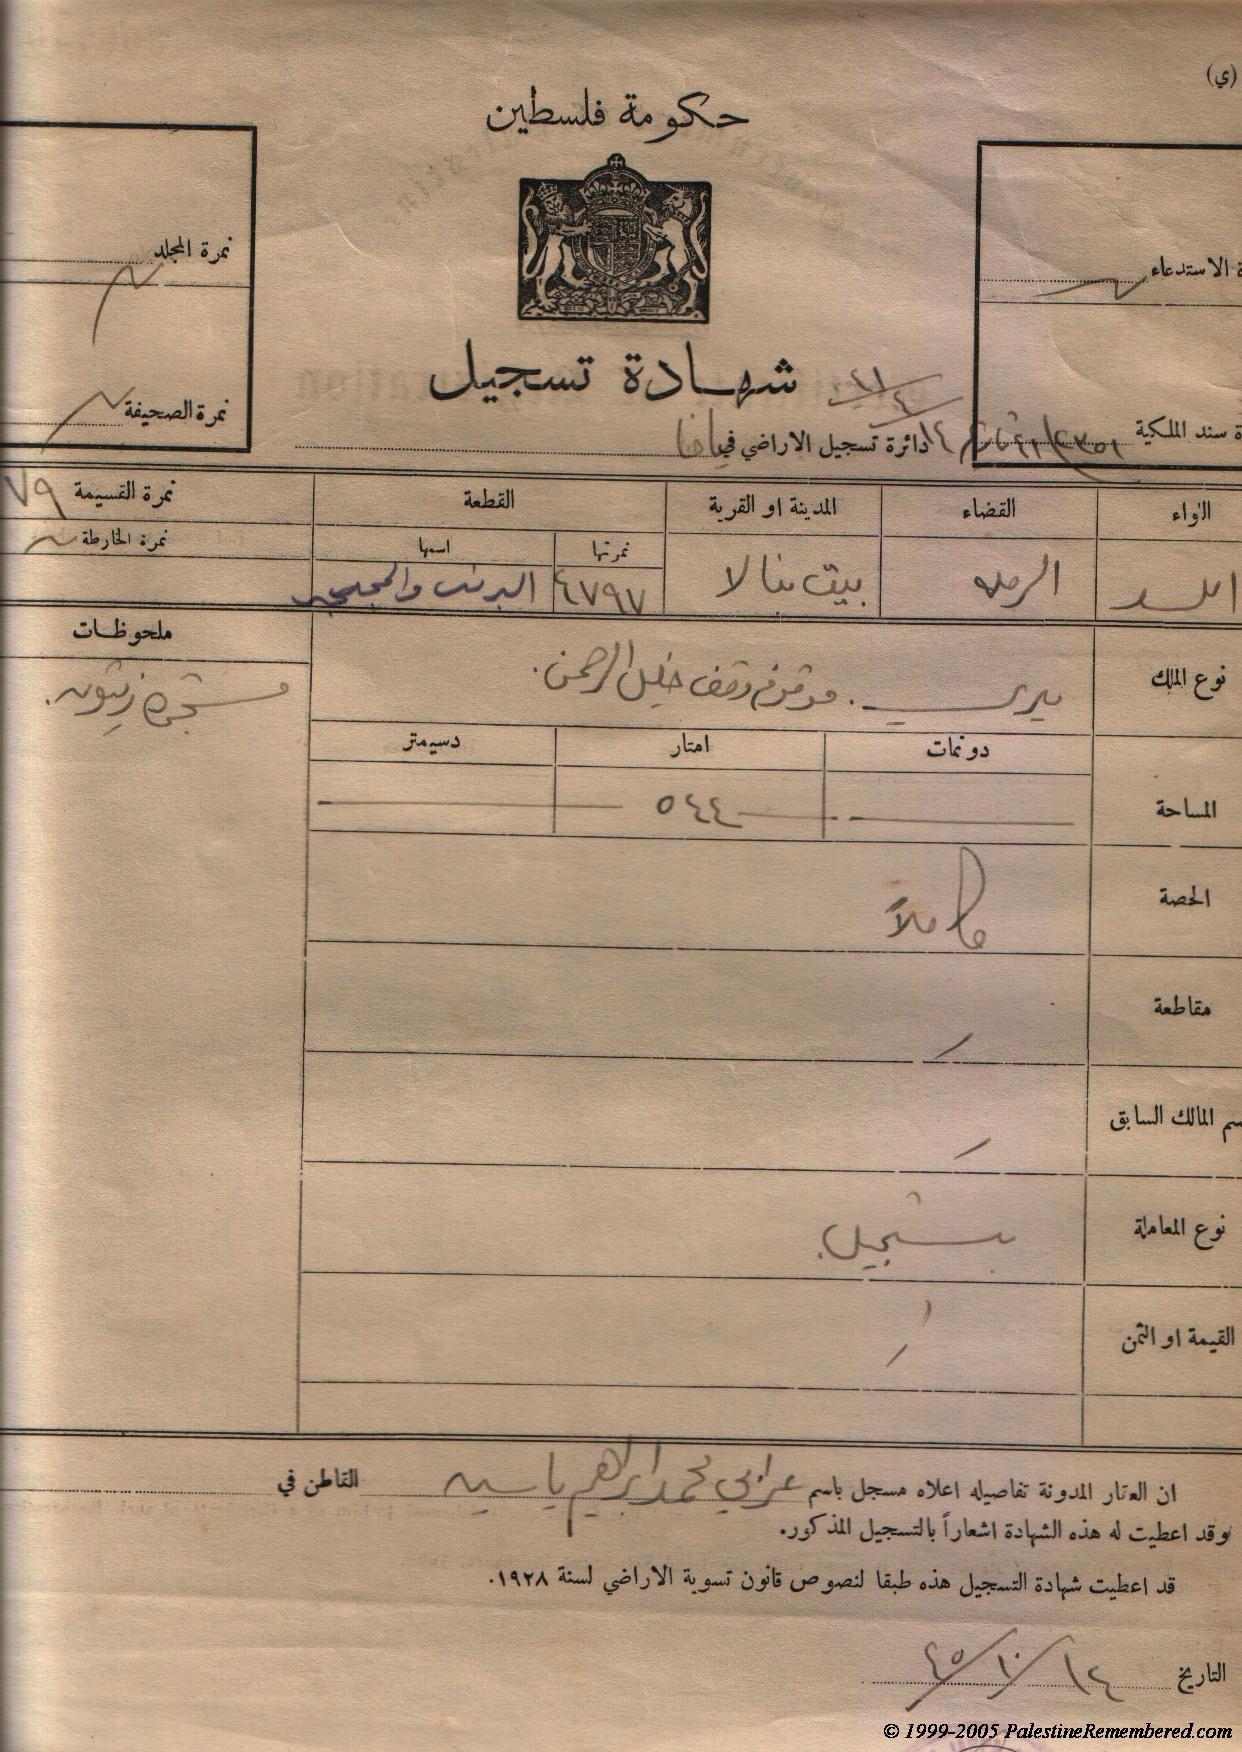 (ي)
حكومة فلسطين
نمرة المجلد
ة الاستدعاء
شهادة تسجيل
نمرة الصحيفة
ة سند الملكية
دائرة تسجيل الاراضي في يافا
اللواء
القضاء
المدينة او القرية
القطعة
نمرة القسيمة ٧٩
نمرتها
اسمها
نمرة الخارطة
اللد
الرمله
بيت نبالا
٦٧٩٧
نوع الملك
ميري . موقوفه وقف خليل الرحمن .
ملحوظات
مشجرة زيتون .
دونمات
امتار
دسيمتر
المساحة
٥٤٤
الحصة
كاملاً
مقاطعة
سم المالك السابق
نوع المعاملة
تسجيل .
القيمة او الثمن
ان العقار المدونة تفاصيله اعلاه مسجل باسم عرابي محمد ابراهيم ياسين القاطن في
وقد اعطيت له هذه الشهادة اشعاراً بالتسجيل المذكور.
قد اعطيت شهادة التسجيل هذه طبقا لنصوص قانون تسوية الاراضي لسنة ١٩٢٨.
التاريخ ١٤/١٠/٤٥
© 1999-2005 PalestineRemembered.com